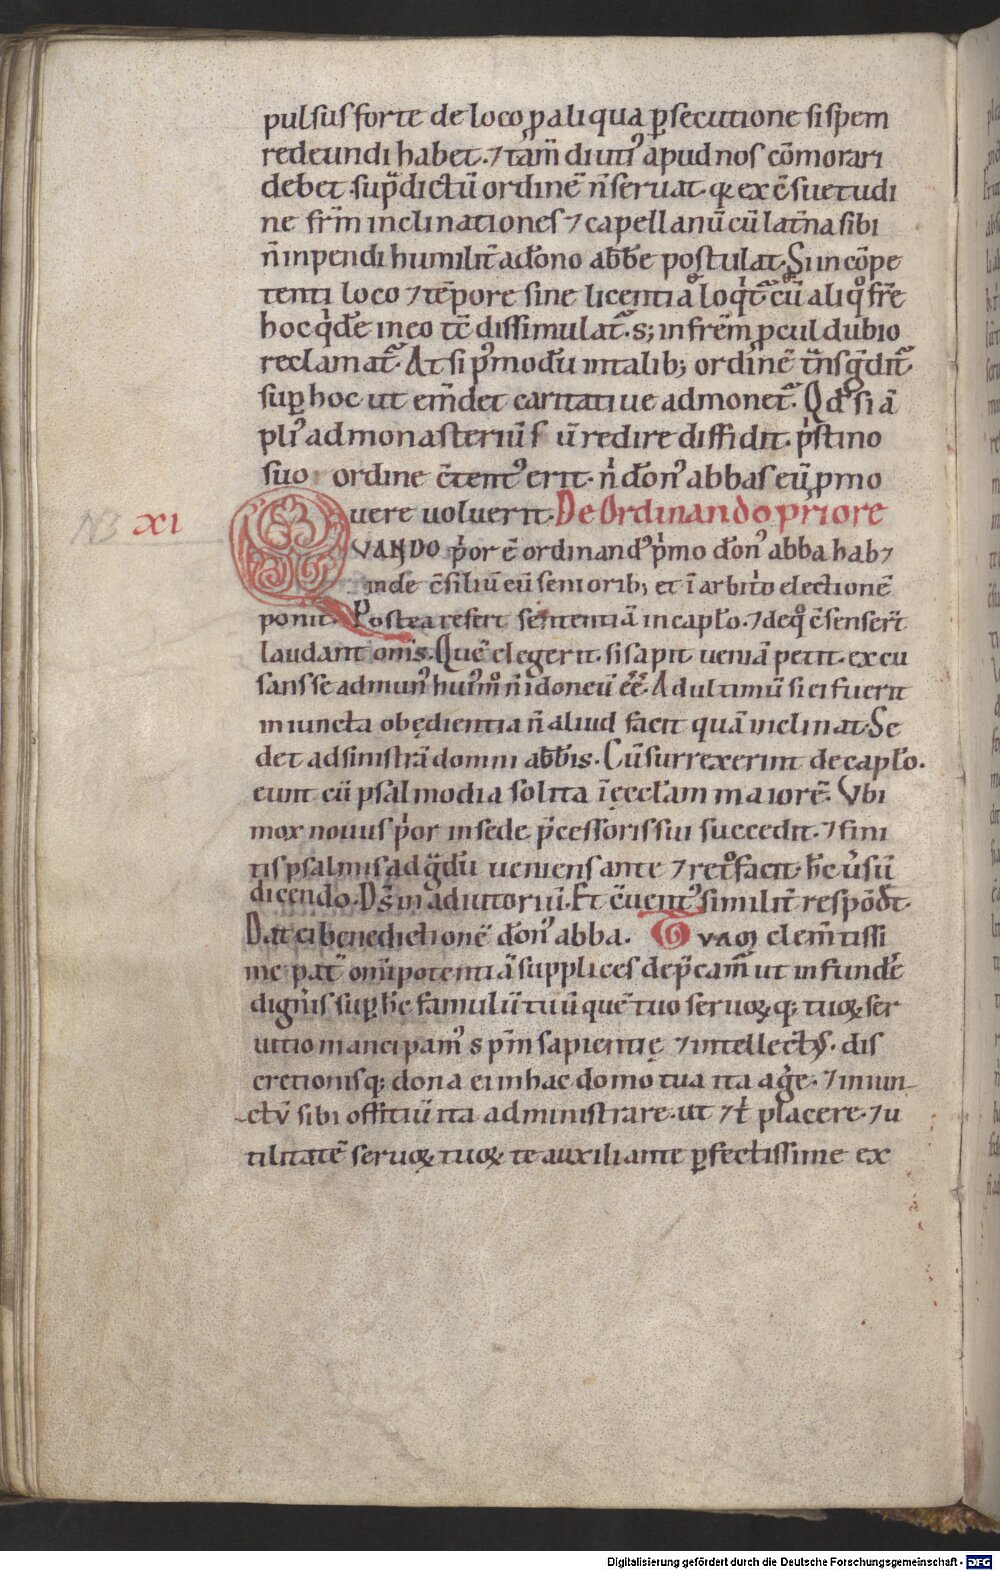 pulsus forte de loco ꝓ aliqua ꝑsecutione si spem
redeundi habet. ⁊ tam̄ diuti᾽ apud nos cōmorari
debet. sup̄dictū ordinē n̄ seruat. qr ex c̄suetudi
ne fr̄m inclinationes ⁊ capellanū cū lat̄na sibi
n̄ inpendi humilit̄ a dōno abb̄e postulat. Si incōpe
tenti loco ⁊ tēpore sine licentia loqͥt̄ cū aliqͦ fr̄e
hoc qͥdē in eo tc̄ dissimulat̄. s; in frēm ꝓcul dubio
reclamat̄. At si pͥmodū in talib; ordinē t̄nsgͣdit̄
suꝑ hoc ut em̄det caritatiue admonet̄. Qđ si ā
pli᾽ ad monasteriū suū redire diffidit. pͥstino
suo ordine c̄tent᾽ erit. nͥ dōn᾽ abbas eū ꝓmo
uere uoluerit. De Ordinando priore
N3 XI
QVANDO pͥor ē ordinand᾽ pͥmo dōn᾽ abba hab⁊
inde c̄siliū cū seniorib; et ī arbitͥo electionē
ponit. Postea refert sententiā in capło. ⁊ de qͦ c̄senser̄t
laudant om̄s. Quē elegerit. si sapit ueniā petit. excu
sans se ad mun᾽ hui᾽mͦ n̄ idoneū ēē. Ad ultimū si ei fuerit
iniuncta obędientia n̄ aliud facit quā inclinat. Se
det ad sinistrā domni abb̄is. Cū surrexerint de capło.
eunt cū psalmodia solita ī ęccłam maiorē. Vbi
mox nouus pͥor in sede p̄cessoris sui succedit. ⁊ fini
tis psalmis ad gͣdū ueniens ante ⁊ retͦ facit. hc̄ u᾽sū
dicendo. Ds̄ in adiutoriū. Et c̄uent᾽ similit̄ respōdt̄.
Dat ei benedictionē dōn᾽ abba. TVAM clem̄tissi
me pat̄ om̄ipotentiā supplices dep̄cam̄ ut infundē
dign̄is suꝑ hc̄ famulū tuū quē tuo seruoꝝ q; tuoꝝ ser
uitio mancipam᾽ sp̄m sapientię ⁊ intellect᾽. dis
cretionisq; dona ei in hac domo tua ita agē. ⁊ iniun
ctū sibi offitiū ita administrare. ut ⁊ tͥ placere. ⁊ u
tilitatē seruoꝝ tuoꝝ te auxiliante ꝑfectissime ex
Digitalisierung gefördert durch die Deutsche Forschungsgemeinschaft - DFG